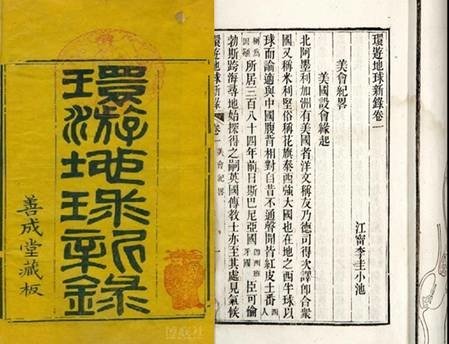 環游地球新錄
善成堂藏板
環遊地球新錄卷一
江寧李圭小池
美會紀畧
美國設會緣起
北阿墨利加洲有美國者洋文稱友乃德司得次譯卽合衆
國又稱米利堅俗稱花旗泰西強大國也在地之西半球以
球而論適與中國腹背相對自昔不通聲聞皆紅皮土番
所居三百八十四年前日斯巴尼亞國卽西班牙國臣可倫
勃斯跨海尋地始探得之嗣英國傳教士亦至其處見氣候
環遊地球新錄 卷一 美會紀畧 一